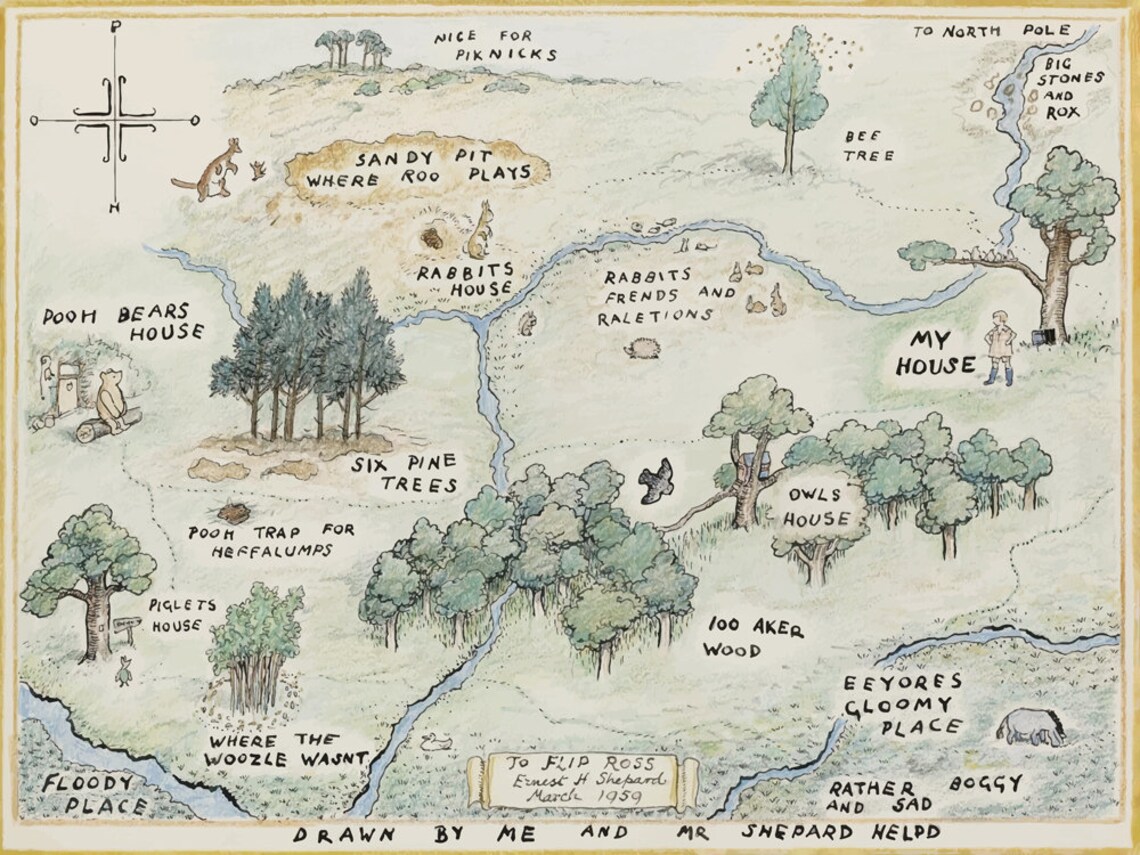 P
O
O
H
NICE FOR
PIKNICKS
TO NORTH POLE
BIG
STONES
AND
ROX
BEE
TREE
SANDY PIT
WHERE ROO PLAYS
RABBITS
HOUSE
RABBITS
FRENDS AND
RALETIONS
POOH BEARS
HOUSE
MY
HOUSE
SIX PINE
TREES
OWLS
HOUSE
POOH TRAP FOR
HEFFALUMPS
PIGLETS
HOUSE
100 AKER
WOOD
EEYORES
GLOOMY
PLACE
WHERE THE
WOOZLE WASNT
FLOODY
PLACE
TO FLIP ROSS
Ernest H Shepard
March 1959
RATHER BOGGY
AND SAD
DRAWN BY ME AND MR SHEPARD HELPD